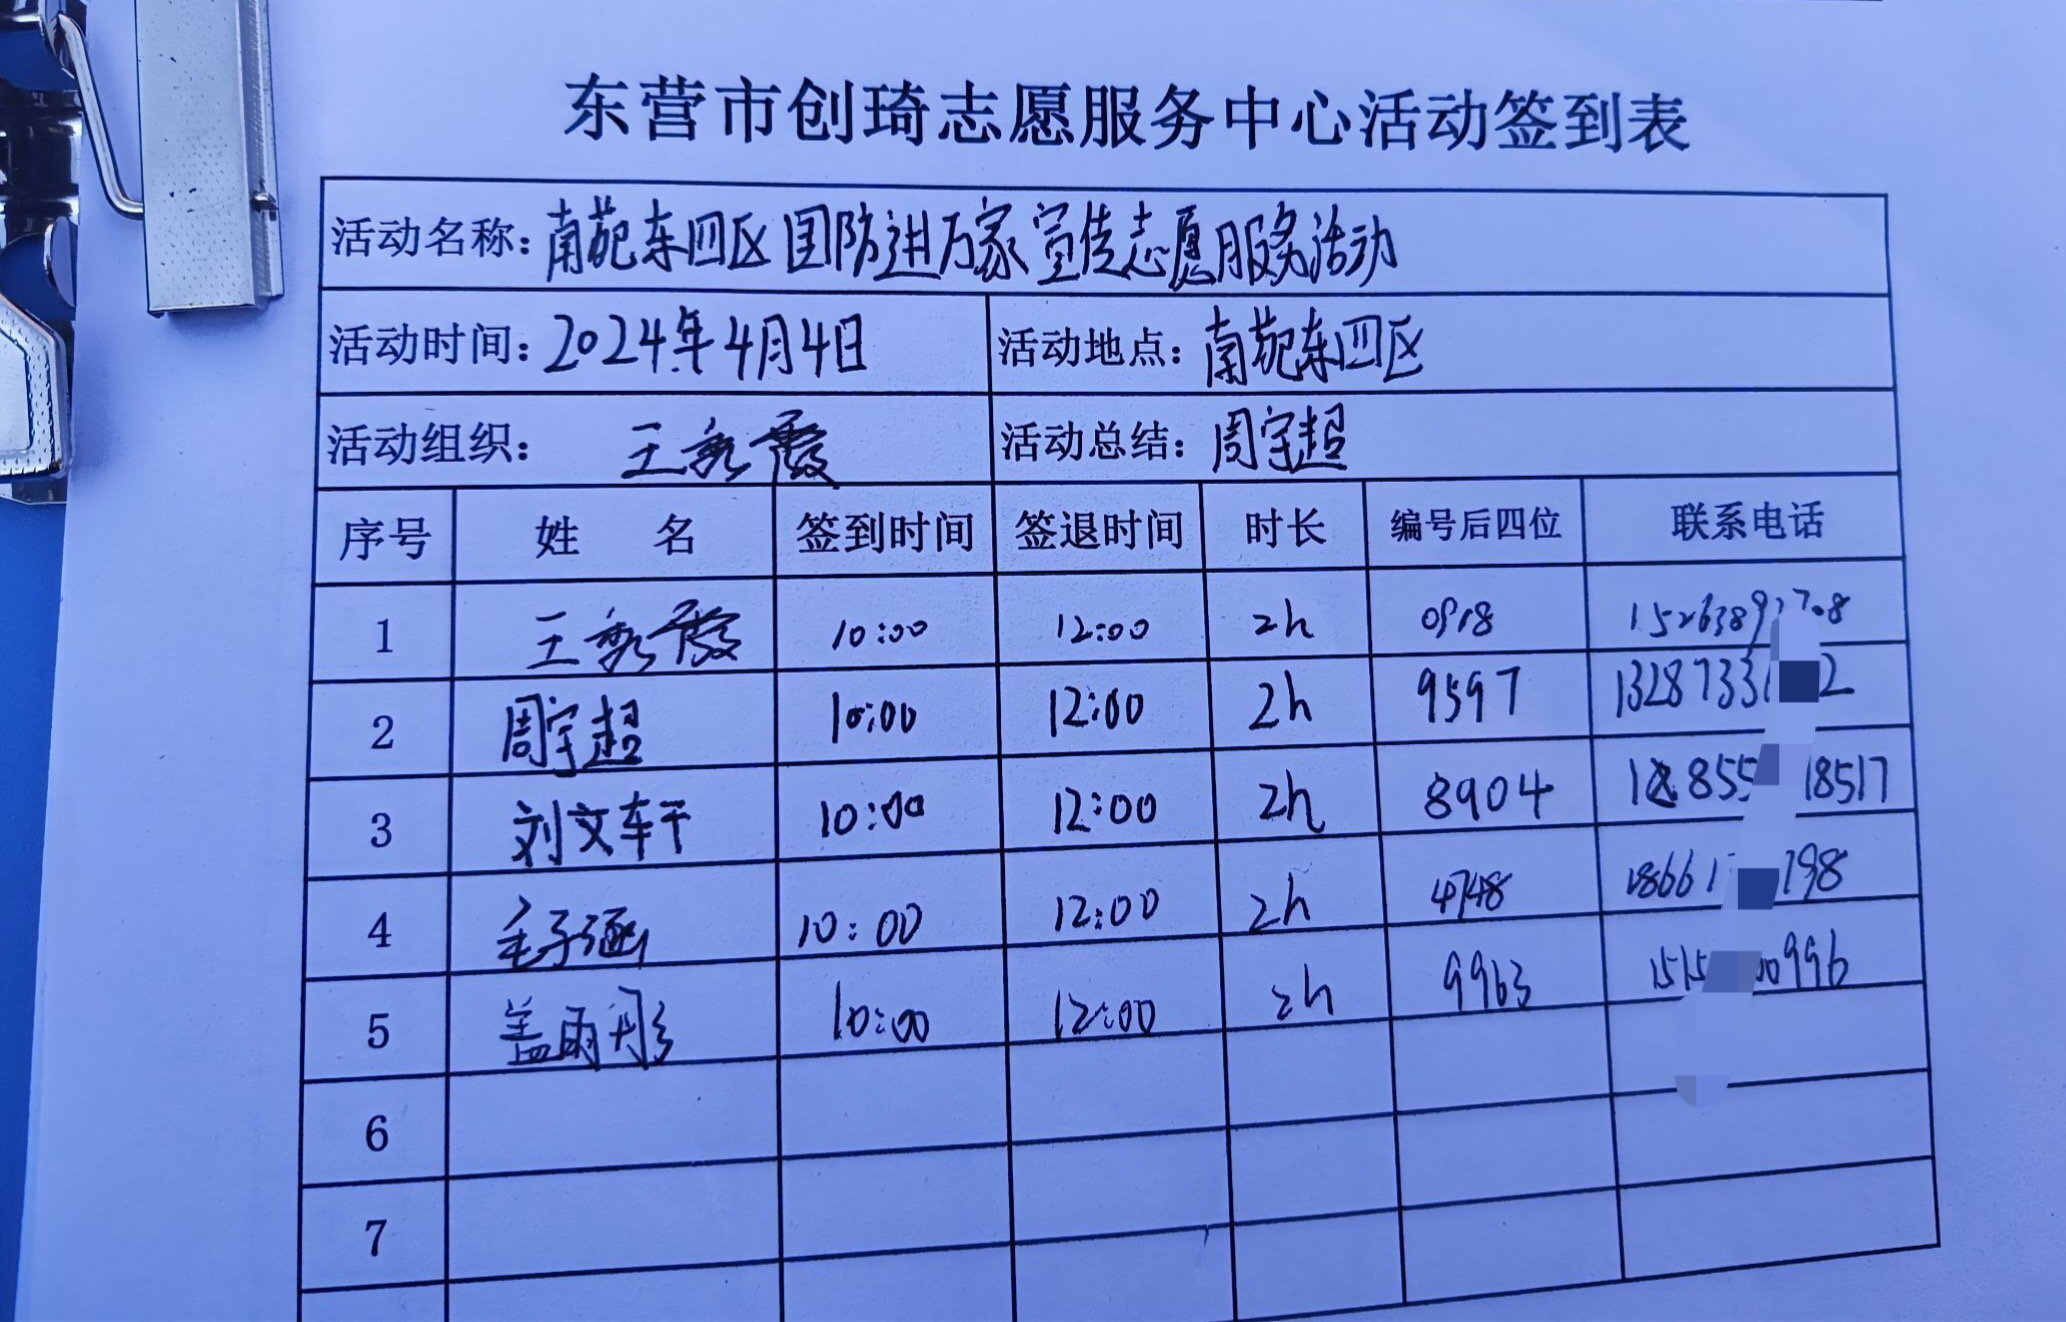 东营市创琦志愿服务中心活动签到表
活动名称：南苑东四区国防进万家宣传志愿服务活动
活动时间：2024年4月4日 活动地点：南苑东四区
活动组织：王秀霞 活动总结：周宇超
序号 姓 名 签到时间 签退时间 时长 编号后四位 联系电话
1 王秀霞 10:00 12:00 2h
2 周宇超 10:00 12:00 2h 9597 1328733 2
3 刘文轩 10:00 12:00 2h 8904 855 18517
4 毛子涵 10:00 12:00 2h 4748 18661 198
5 盖雨彤 10:00 12:00 2h 9963 1515 00996
6
7